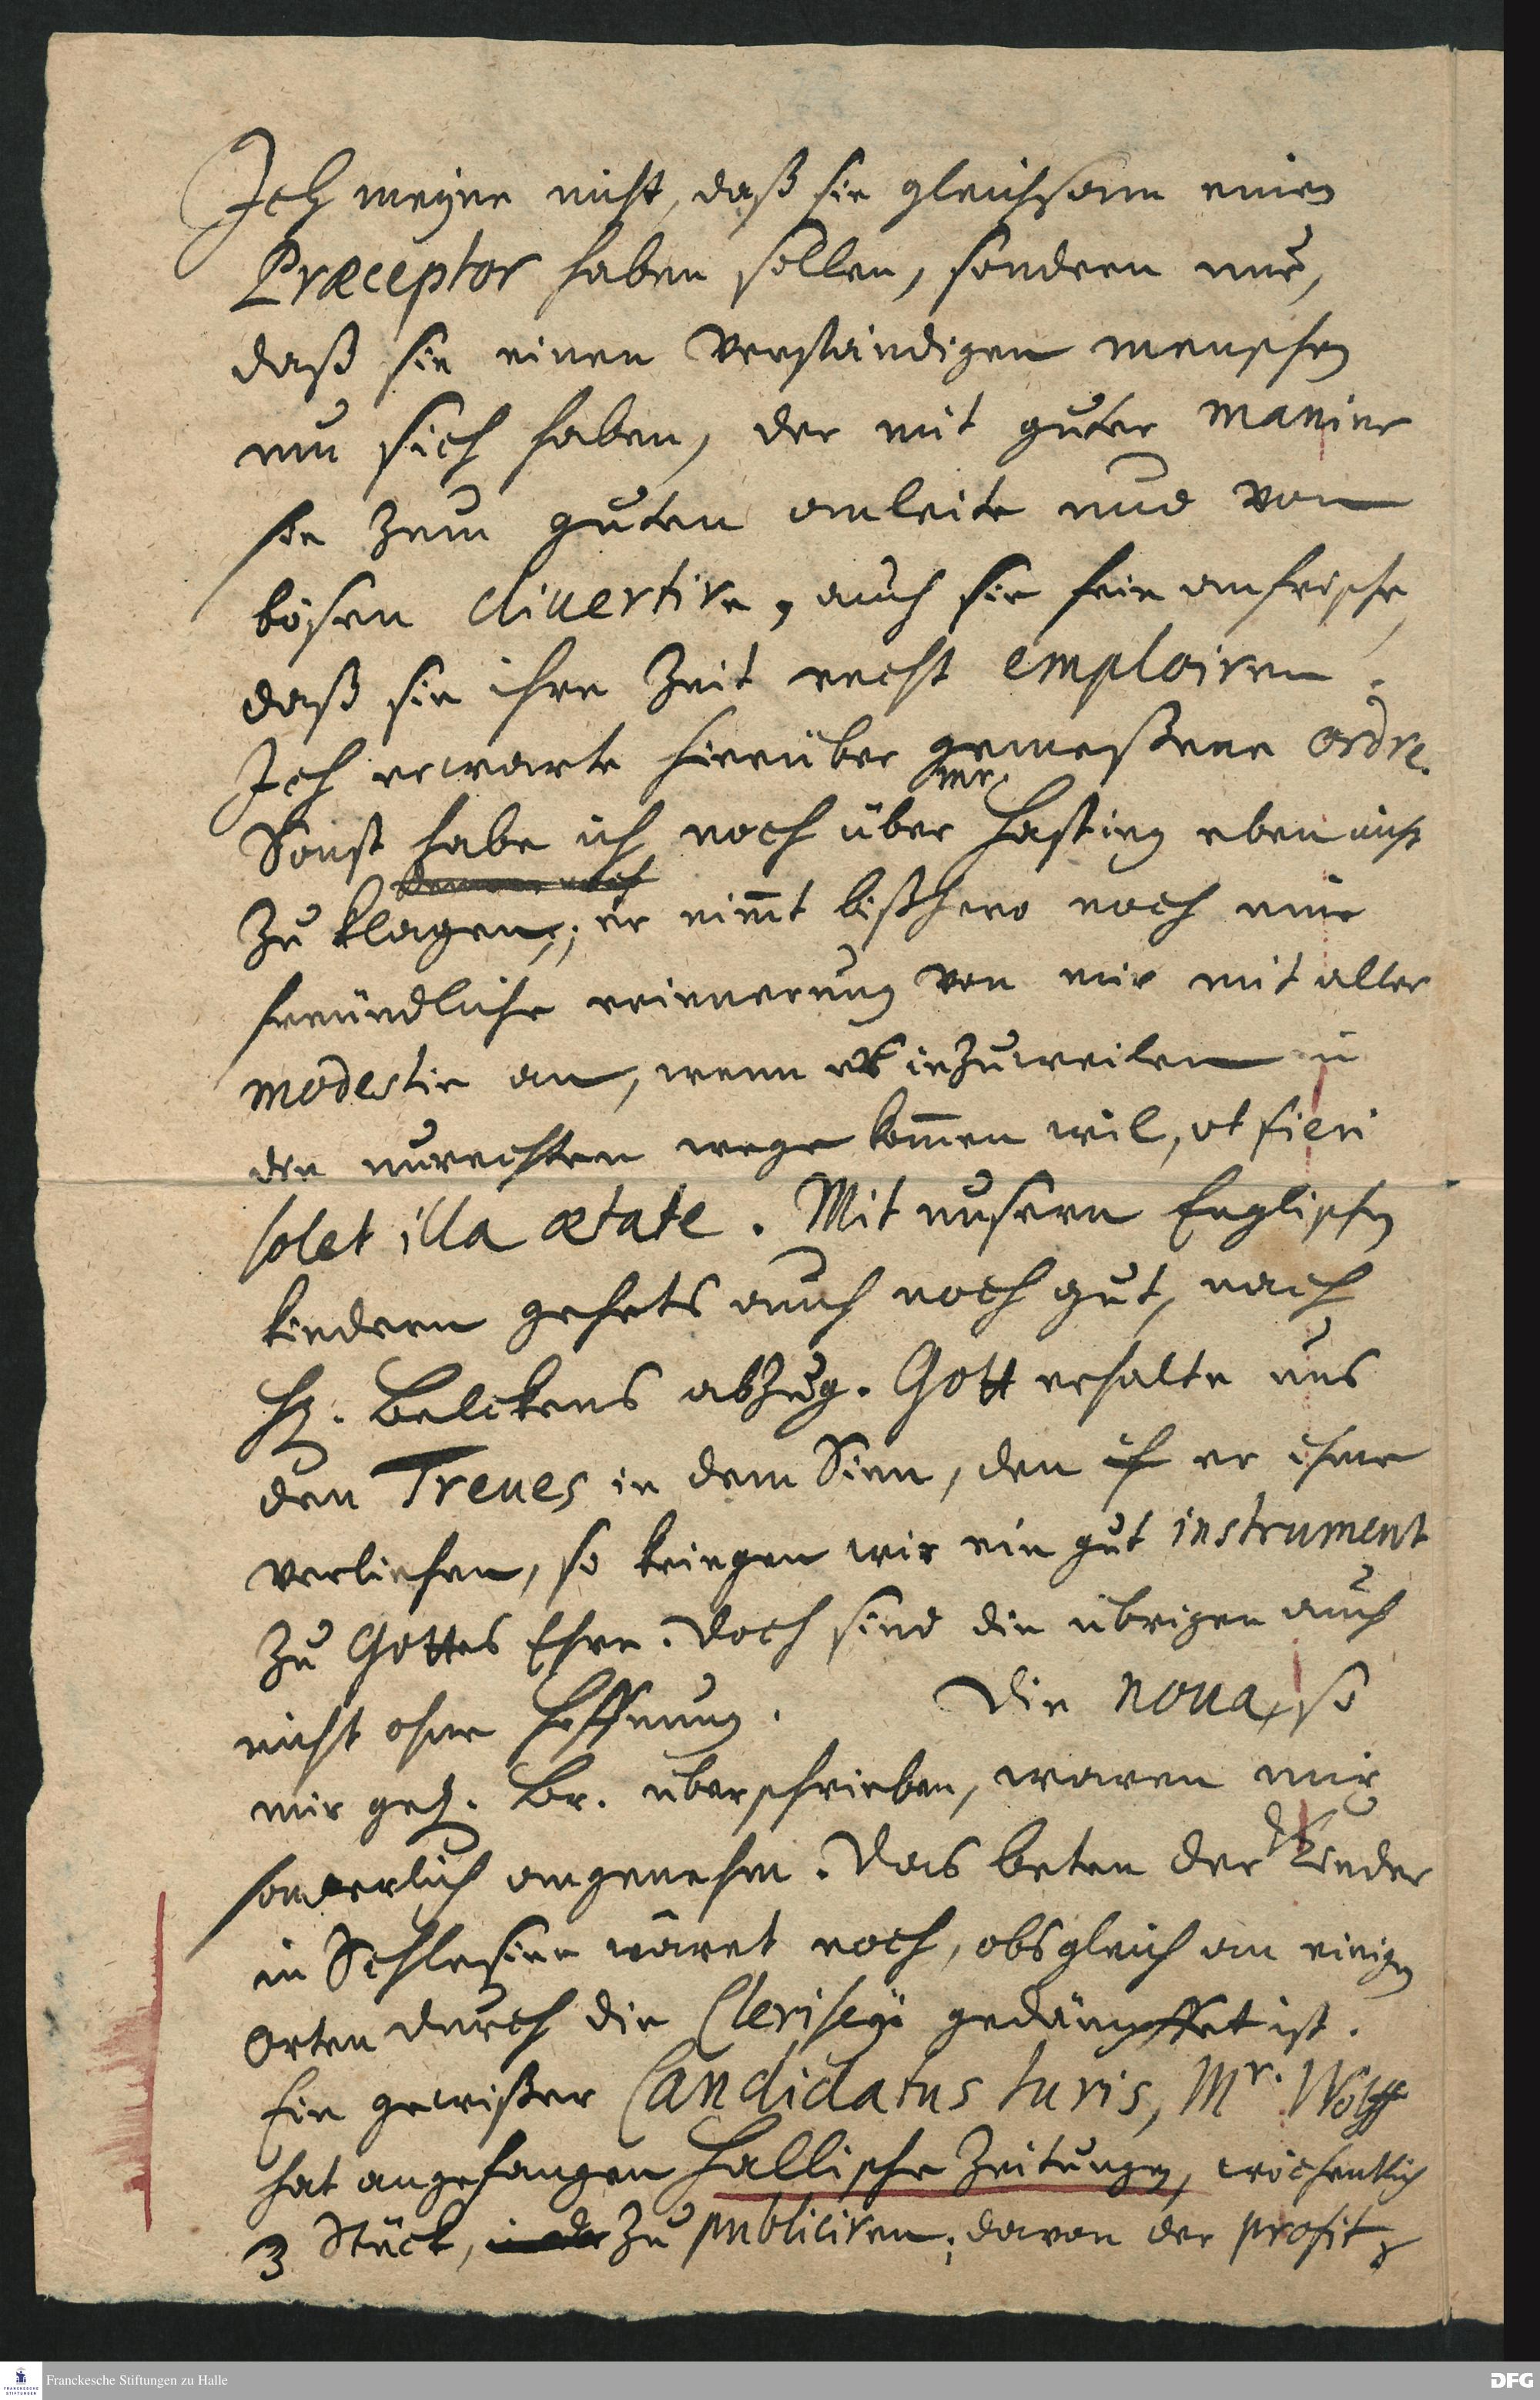 Ich meyne nicht, daß sie gleichsam einen
Præceptor haben sollen, sondern nur,
daß sie einen verständigen menschen
um sich haben, der mit guter manier
sie zum guten anleite und vom
bösen divertire, auch sie fein anfrische,
daß sie ihre Zeit recht emploiren.
Ich erwarte hierüber gemeßene ordre.
Sonst habe ich noch über mr. Hasting eben nicht
zu klagen; er nim̅t bißhero noch eine
freündliche erinnerung von mir mit aller
modestie an, wenn es iezuweilen in
den unrechten wege kom̅en wil, ut fieri
solet illa ætate. Mit unsern Englischen
kindern gehets auch noch gut, nach
H. Belckens abzug. Gott erhalte uns
den Treues in dem Sinn, den er ihme
verliehen, so kriegen wir ein gut instrument
zu Gottes Ehre. Doch sind die übrigen auch
nicht ohne Hoffnung. Die noua, so
mir gel. Br. überschrieben, waren mir
sonderlich angenehm. Das beten der Kinder
in Schlesien wäret noch, obs gleich an einigen
Orten durch die Clerisey gedämpffet ist.
Ein gewißer Candidatus Iuris, Mr. Wolff
hat angefangen Hallische Zeitungen, wöchentlich
3 Stück, zu publiciren; davon der profit
Franckesche Stiftungen zu Halle
DFG